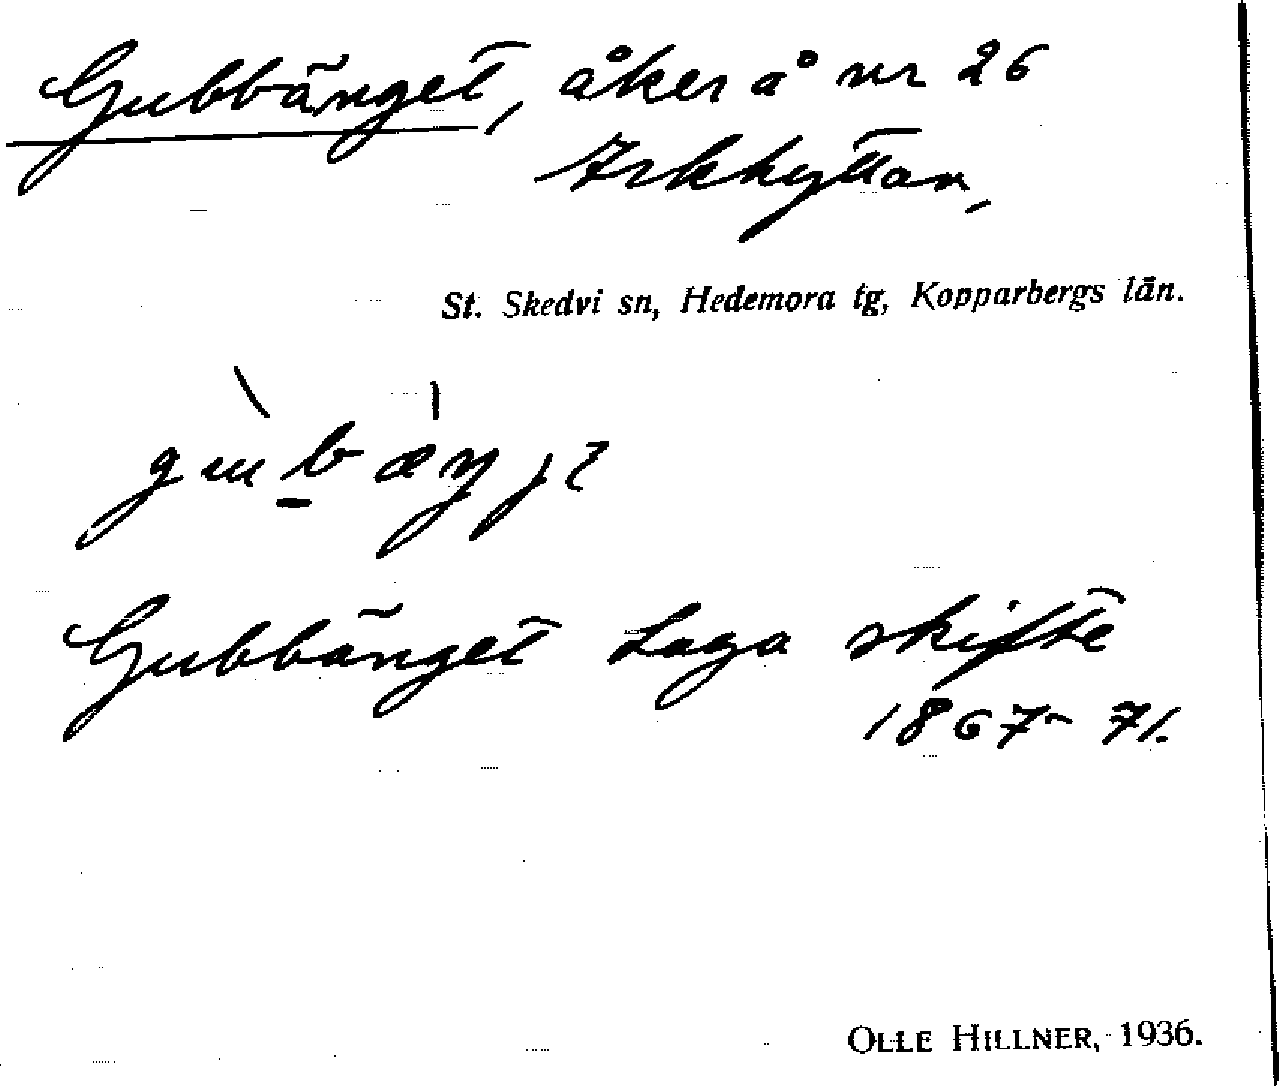 Gubbänget, åker å nr 26
Arkhyttan,
St. Skedvi sn, Hedemora tg, Kopparbergs län.
Gubbänget Laga skifte
1867-71.
OLLE HILLNER, 1936.